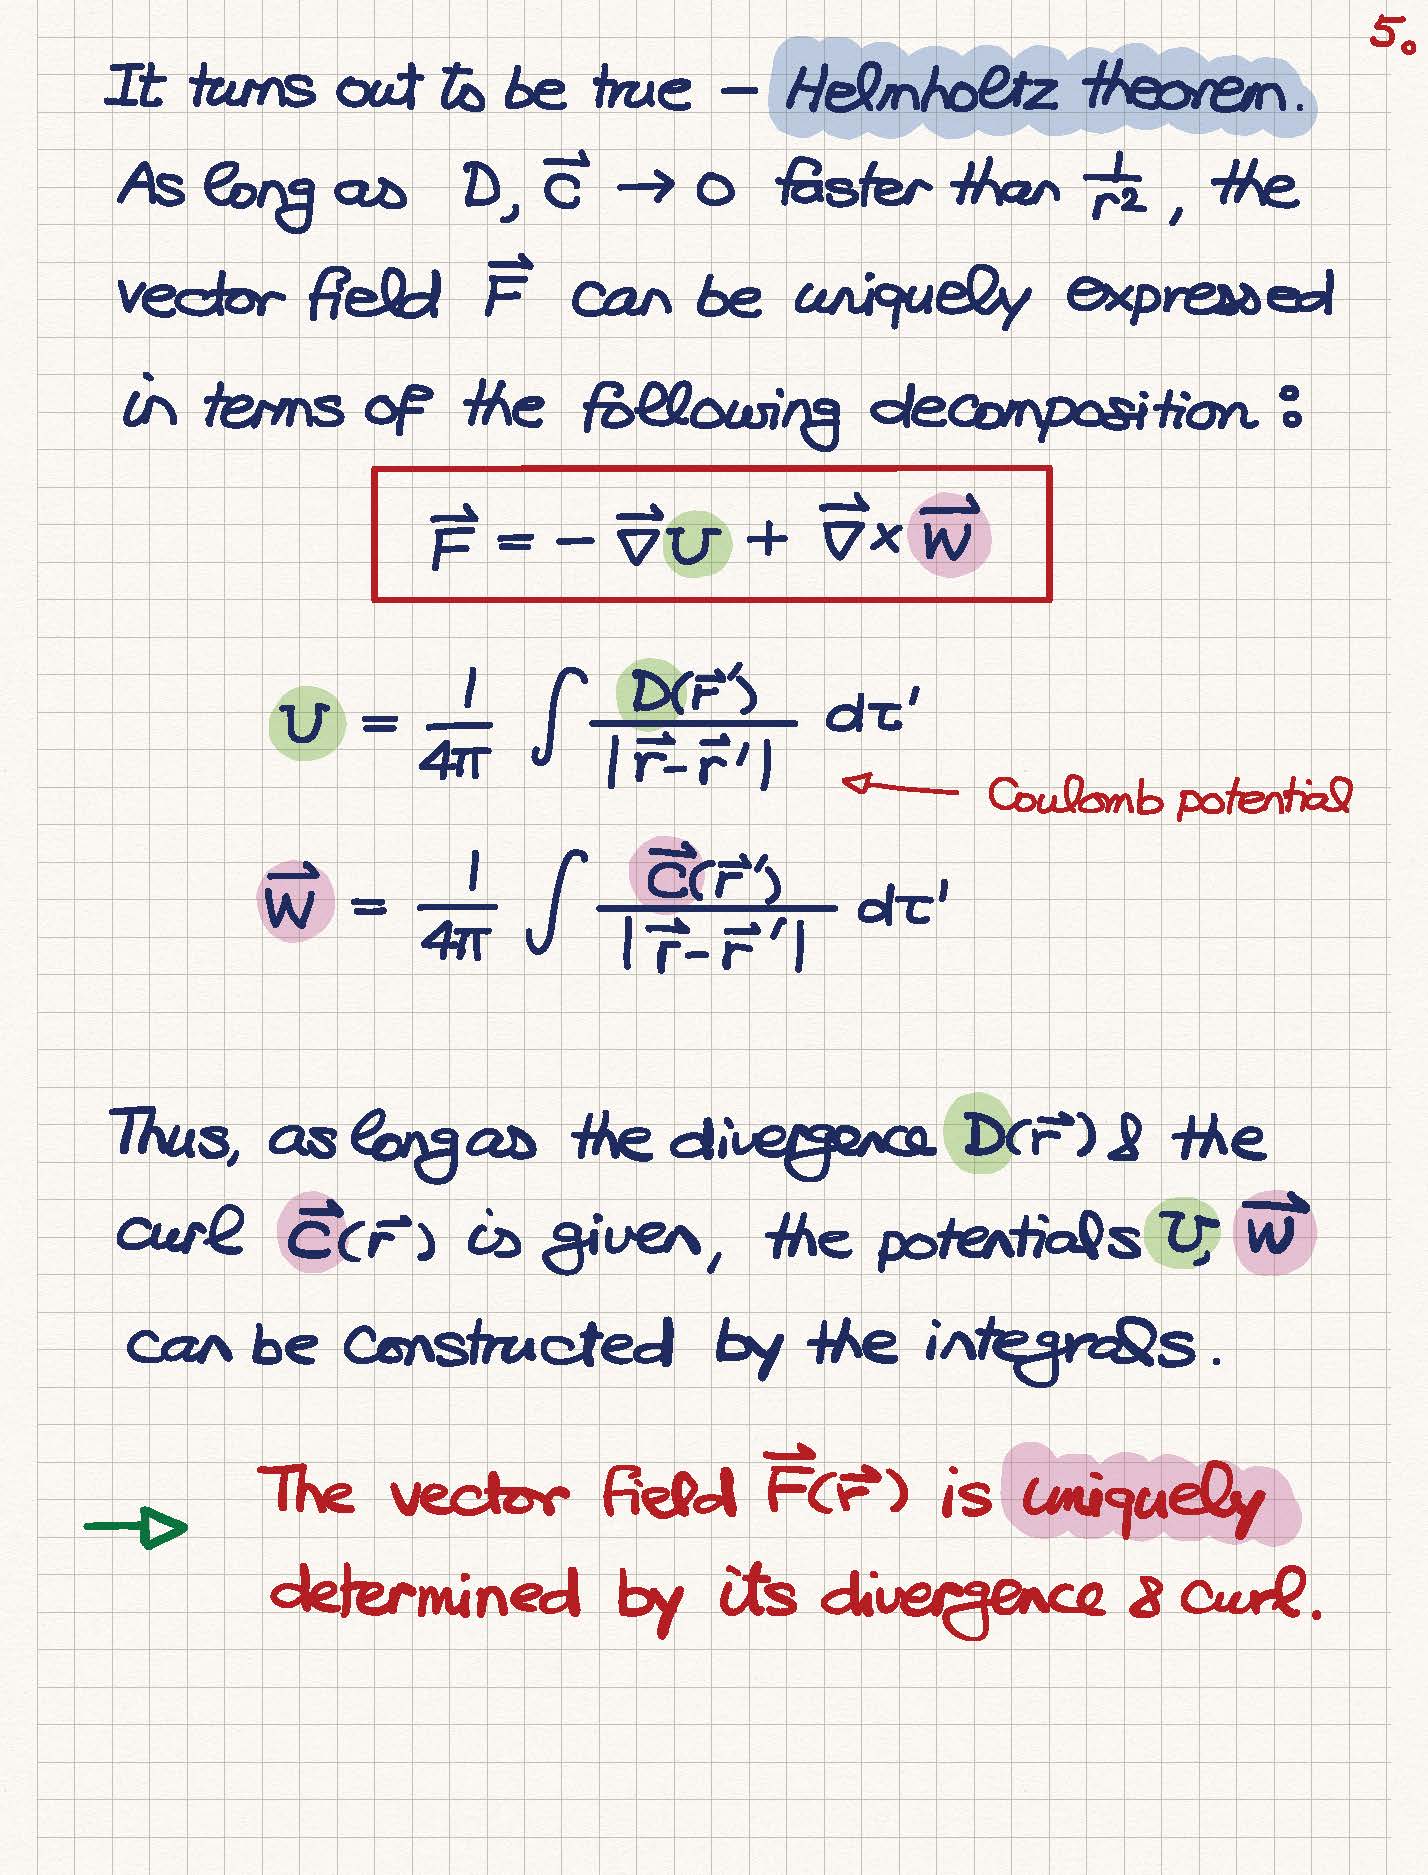 5.
It turns out to be true — Helmholtz theorem.
As long as D, C⃗ → 0 faster than 1/r², the
vector field F⃗ can be uniquely expressed
in terms of the following decomposition :
F⃗ = - ∇⃗U + ∇⃗×W⃗
U = 1/4π ∫ D(r⃗′)/|r⃗-r⃗′| dτ′
← Coulomb potential
W⃗ = 1/4π ∫ C⃗(r⃗′)/|r⃗-r⃗′| dτ′
Thus, as long as the divergence D(r⃗) & the
curl C⃗(r⃗) is given, the potentials U, W⃗
can be constructed by the integrals.
→ The vector field F⃗(r⃗) is uniquely
determined by its divergence & curl.